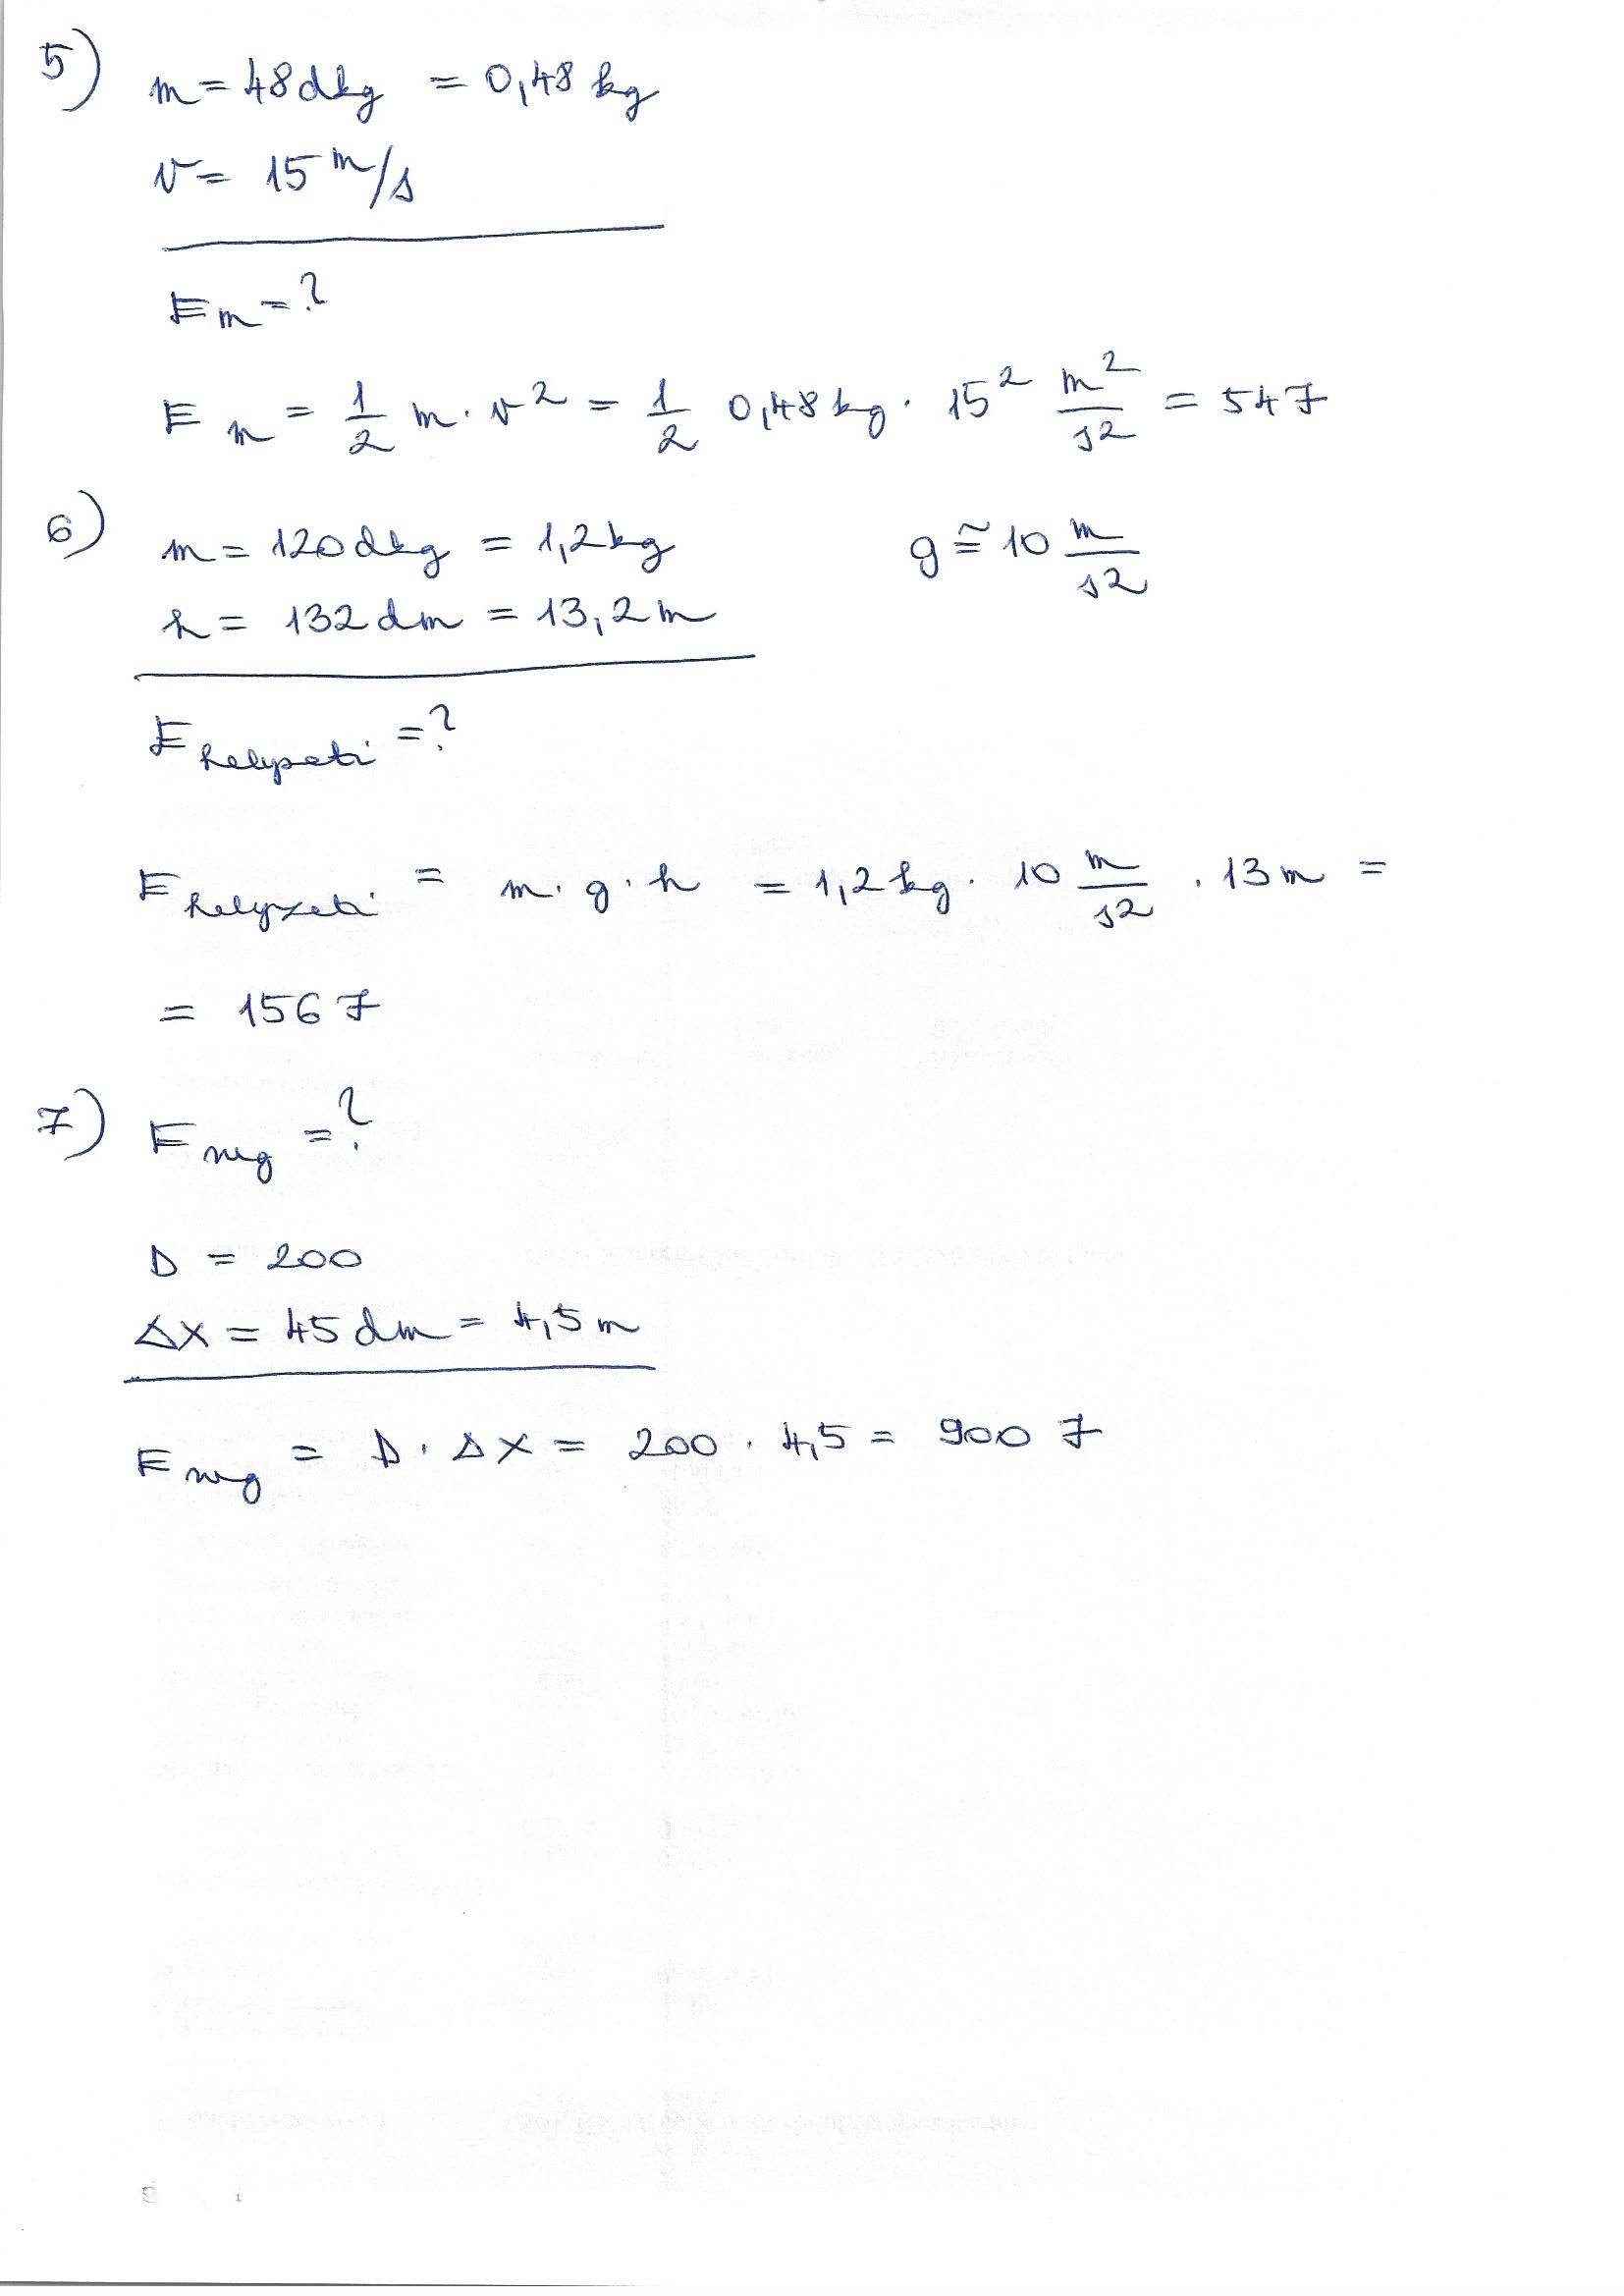 5) m = 48 dkg = 0,48 kg
v = 15 m/s
Em = ?
Em = 1/2 m · v² = 1/2 0,48 kg · 15² m²/s² = 54 J
6) m = 120 dkg = 1,2 kg g ≅ 10 m/s²
h = 132 dm = 13,2 m
Ehelyzeti = ?
Ehelyzeti = m · g · h = 1,2 kg · 10 m/s² · 13 m =
= 156 J
7) Erug = ?
D = 200
Δx = 45 dm = 4,5 m
Erug = D · Δx = 200 · 4,5 = 900 J